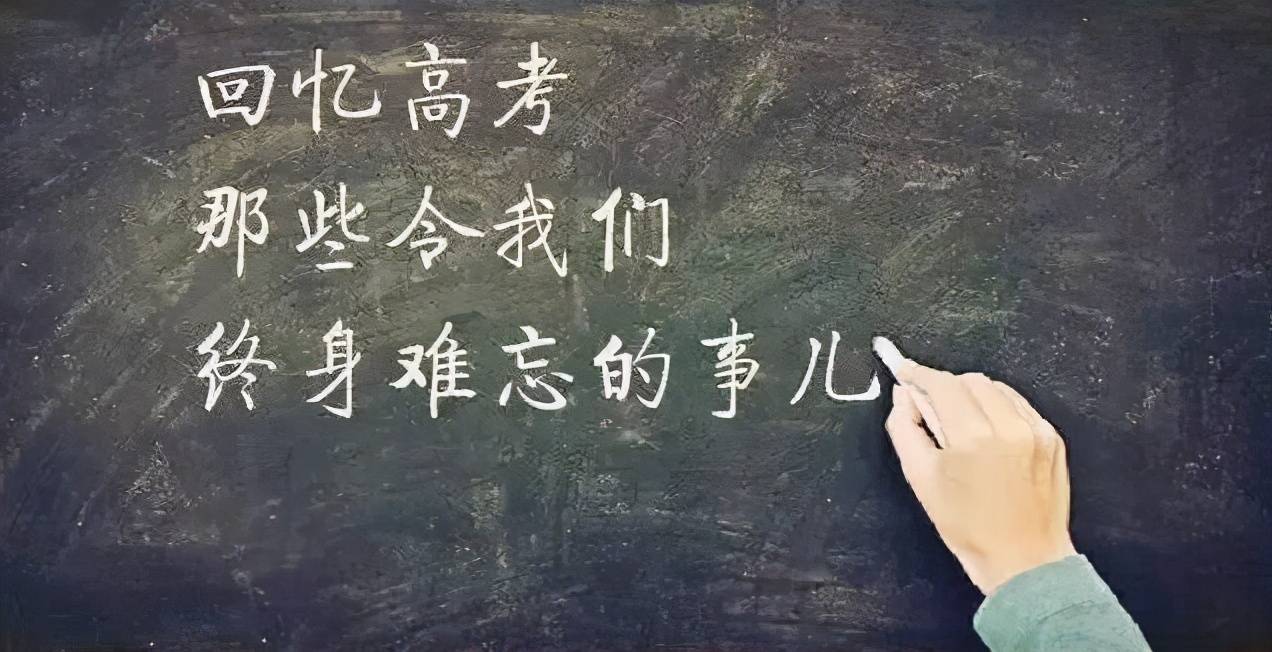 回忆高考
那些令我们
终身难忘的事儿